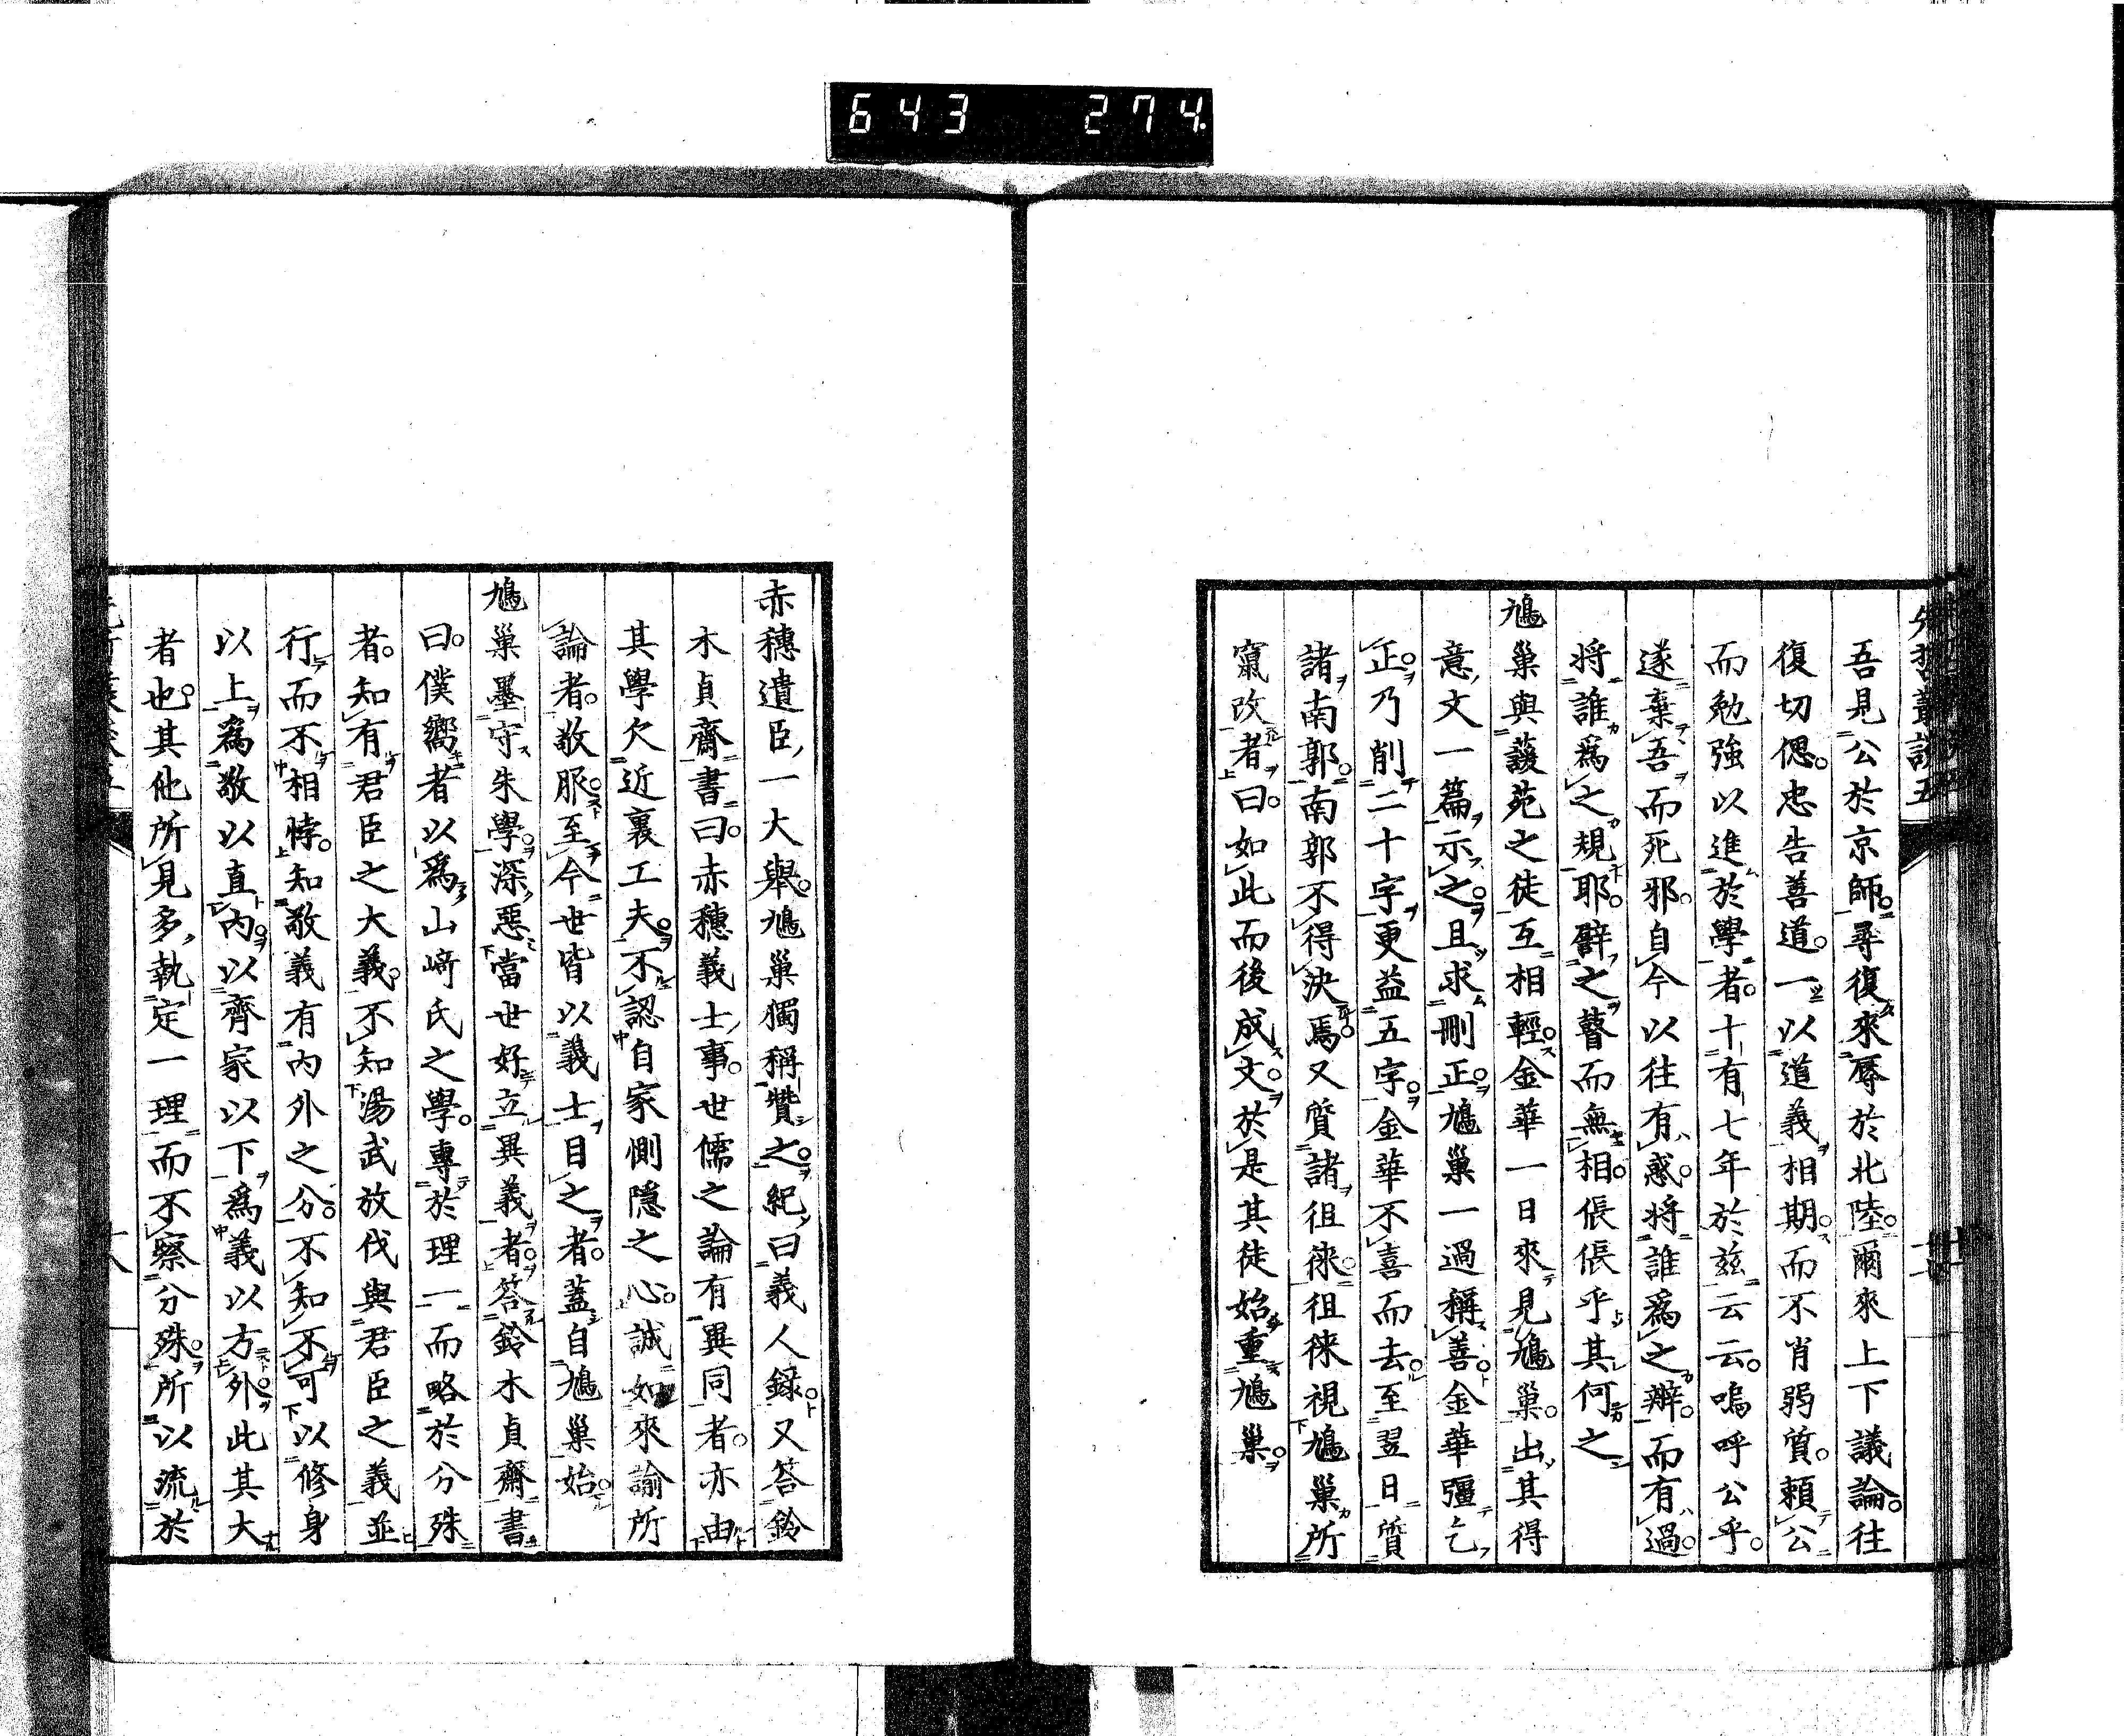 643 274
吾見公於京師。尋復來辱於北陸。爾來上下議論。往
復切偲。忠告善道。一以道義相期。而不肖弱質。賴公
而勉強以進於學者。十有七年於茲云云。嗚呼公乎。
遂棄吾而死邪。自今以往有惑。將誰爲之辨。而有過。
將誰爲之規耶。譬之瞽而無相。倀倀乎其何之
鳩巢與蘐苑之徒互相輕。金華一日來見鳩巢。出其得
意文一篇示之。且求刪正。鳩巢一過稱善。金華彊乞
正。乃削二十字更益五字。金華不喜而去。至翌日質
諸南郭。南郭不得決焉。又質諸徂徠。徂徠視鳩巢所
竄改者曰。如此而後成文。於是其徒始重鳩巢。
赤穗遺臣一大舉。鳩巢獨稱贊之。紀曰義人錄。又答鈴
木貞齋書曰。赤穗義士事。世儒之論有異同者。亦由
其學欠近裏工夫。不認自家惻隱之心。誠如來諭所
論者。敬服。至今世皆以義士目之者。蓋自鳩巢始。
鳩巢墨守朱學。深惡當世好立異義者。答鈴木貞齋書
曰。僕嚮者以爲山崎氏之學。專於理一而略於分殊
者。知有君臣之大義。不知湯武放伐與君臣之義並
行而不相悖。知敬義有內外之分。不知不可以修身
以上爲敬以直內。以齊家以下爲義以方外。此其大
者也。其他所見多執定一理而不察分殊。所以流於